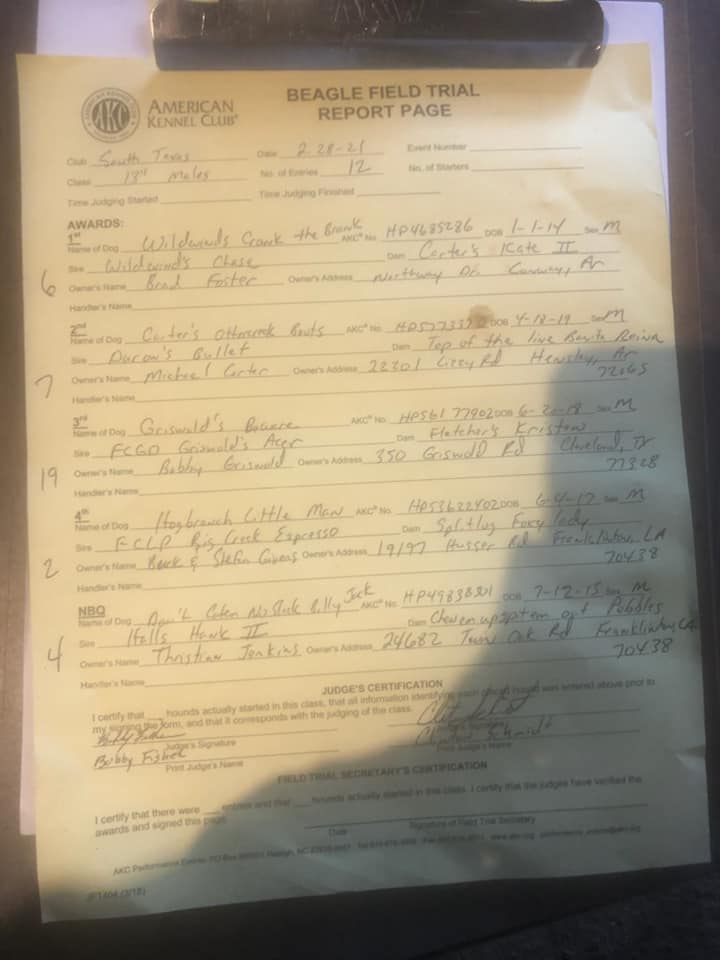 AMERICAN KENNEL CLUB®
BEAGLE FIELD TRIAL
REPORT PAGE
Club South Texas Date 2-28-21 Event Number
Class 13" Males No. of Entries 12 No. of Starters
Time Judging Started Time Judging Finished
AWARDS:
1st
Name of Dog Wildwinds Crank the Brank AKC® No. HP4685286 DOB 1-1-14 Sex M
Sire Wildwind's Chase Dam Carter's Kate II
6 Owner's Name Brad Foster Owner's Address Northway Dr. Conway, Ar
Handler's Name
2nd
Name of Dog Carter's Ottercreek AKC® No. DOB 4-18-19 Sex M
Sire Bullet Dam Top of the line Reina
7 Owner's Name Michael Carter Owner's Address 22301 Lizzy Rd Hensley, Ar
72065
Handler's Name
3rd
Name of Dog Griswald's AKC® No. HP56177902 DOB Sex M
Sire FCGD Griswald's Acer Dam Fletcher's Kristen
19 Owner's Name Bobby Griswold Owner's Address 350 Griswold Rd Cleveland, TX
77328
Handler's Name
4th
Name of Dog Hogbranch Little Man AKC® No. HP53622402 DOB 6-4-17 Sex M
Sire FCLP Big Creek Espresso Dam Splitlug Foxy lady
2 Owner's Name Buck & Stefen Givens Owner's Address 19197 Husser Rd Franklinton, LA
70438
Handler's Name
NBQ
Name of Dog Billy Jack AKC® No. DOB 7-12-15 Sex M
Sire Hawk II Dam Pebbles
4 Owner's Name Jenkins Owner's Address 24682 Town Oak Rd Franklinton LA
70438
Handler's Name
JUDGE'S CERTIFICATION
I certify that hounds actually started in this class, that all information identifying each placed hound was entered above prior to
my signing the form, and that it corresponds with the judging of the class.
Judge's Signature
Bobby Fisher Schmidt
Print Judge's Name Print Judge's Name
FIELD TRIAL SECRETARY'S CERTIFICATION
I certify that there were entries and that hounds actually started in this class. I certify that the judges have verified the
awards and signed this page.
Date Signature of Field Trial Secretary
AKC Performance Events, PO Box Raleigh, NC
(3/18)